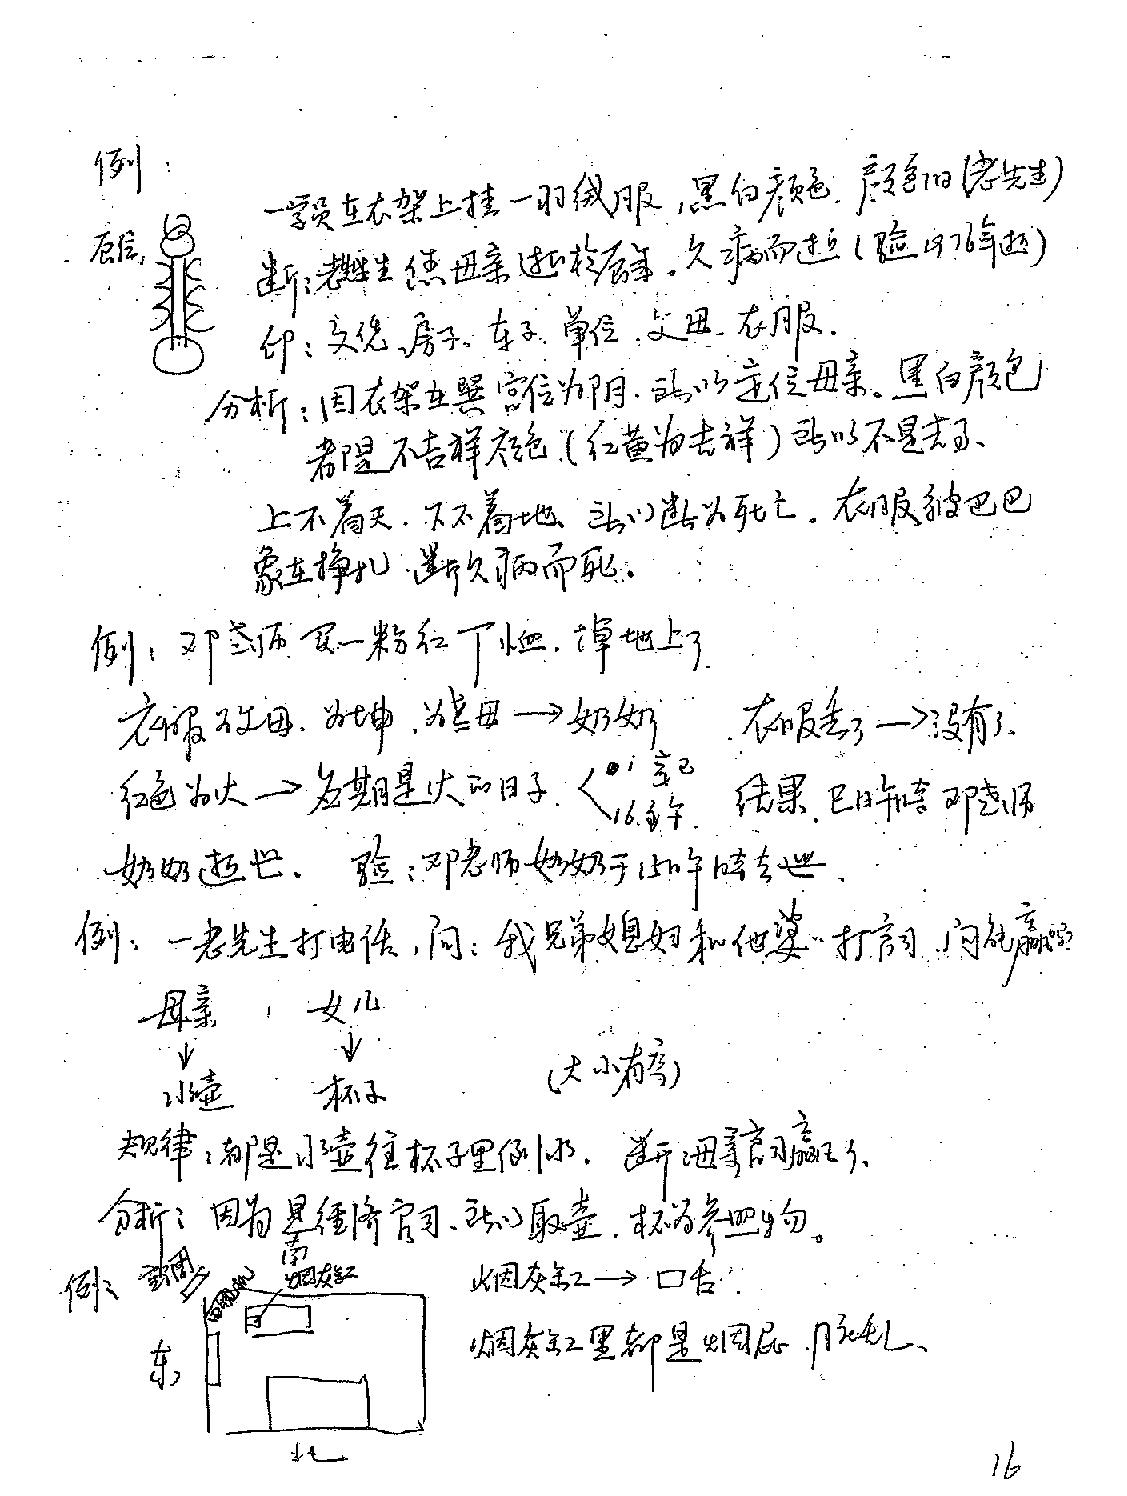 例：
一学员在衣架上挂一羽绒服，黑白颜色．颜色旧（老先生）
辰位，
断：老先生 母亲逝于辰年．久病而逝（验1976年逝）
印：文凭、房子、车子、单位、父母、衣服．
分析：因衣架在巽宫位为阴．所以定位母亲。黑白颜色
都是不吉祥颜色（红黄为吉祥）所以不是吉了、
上不着天．下不着地、所以断为死亡．衣服皱巴巴
象在挣扎．断久病而死。
例：邓老师买一粉红 掉地上了
衣服为父母．为坤．为 母→奶奶 衣服丢了→没有了．
红色为火→应期是火的日子． 结果．巳日午时 邓老师
奶奶逝世． 验：邓老师奶奶于15日午时去世．
例：一老先生打电话，问：我兄弟媳妇和他婆婆打官司，问能赢吗
母亲， 女儿
↓ ↓
水壶 杯子 （大小有序）
规律：都是水壶往杯子里倒水． 断：母亲官司赢了、
分析：因为是经济官司、所以取壶．杯为参照物。
例： 南 烟灰缸 烟灰缸→口舌．
烟灰缸里都是烟屁．脏乱、
东
北
16